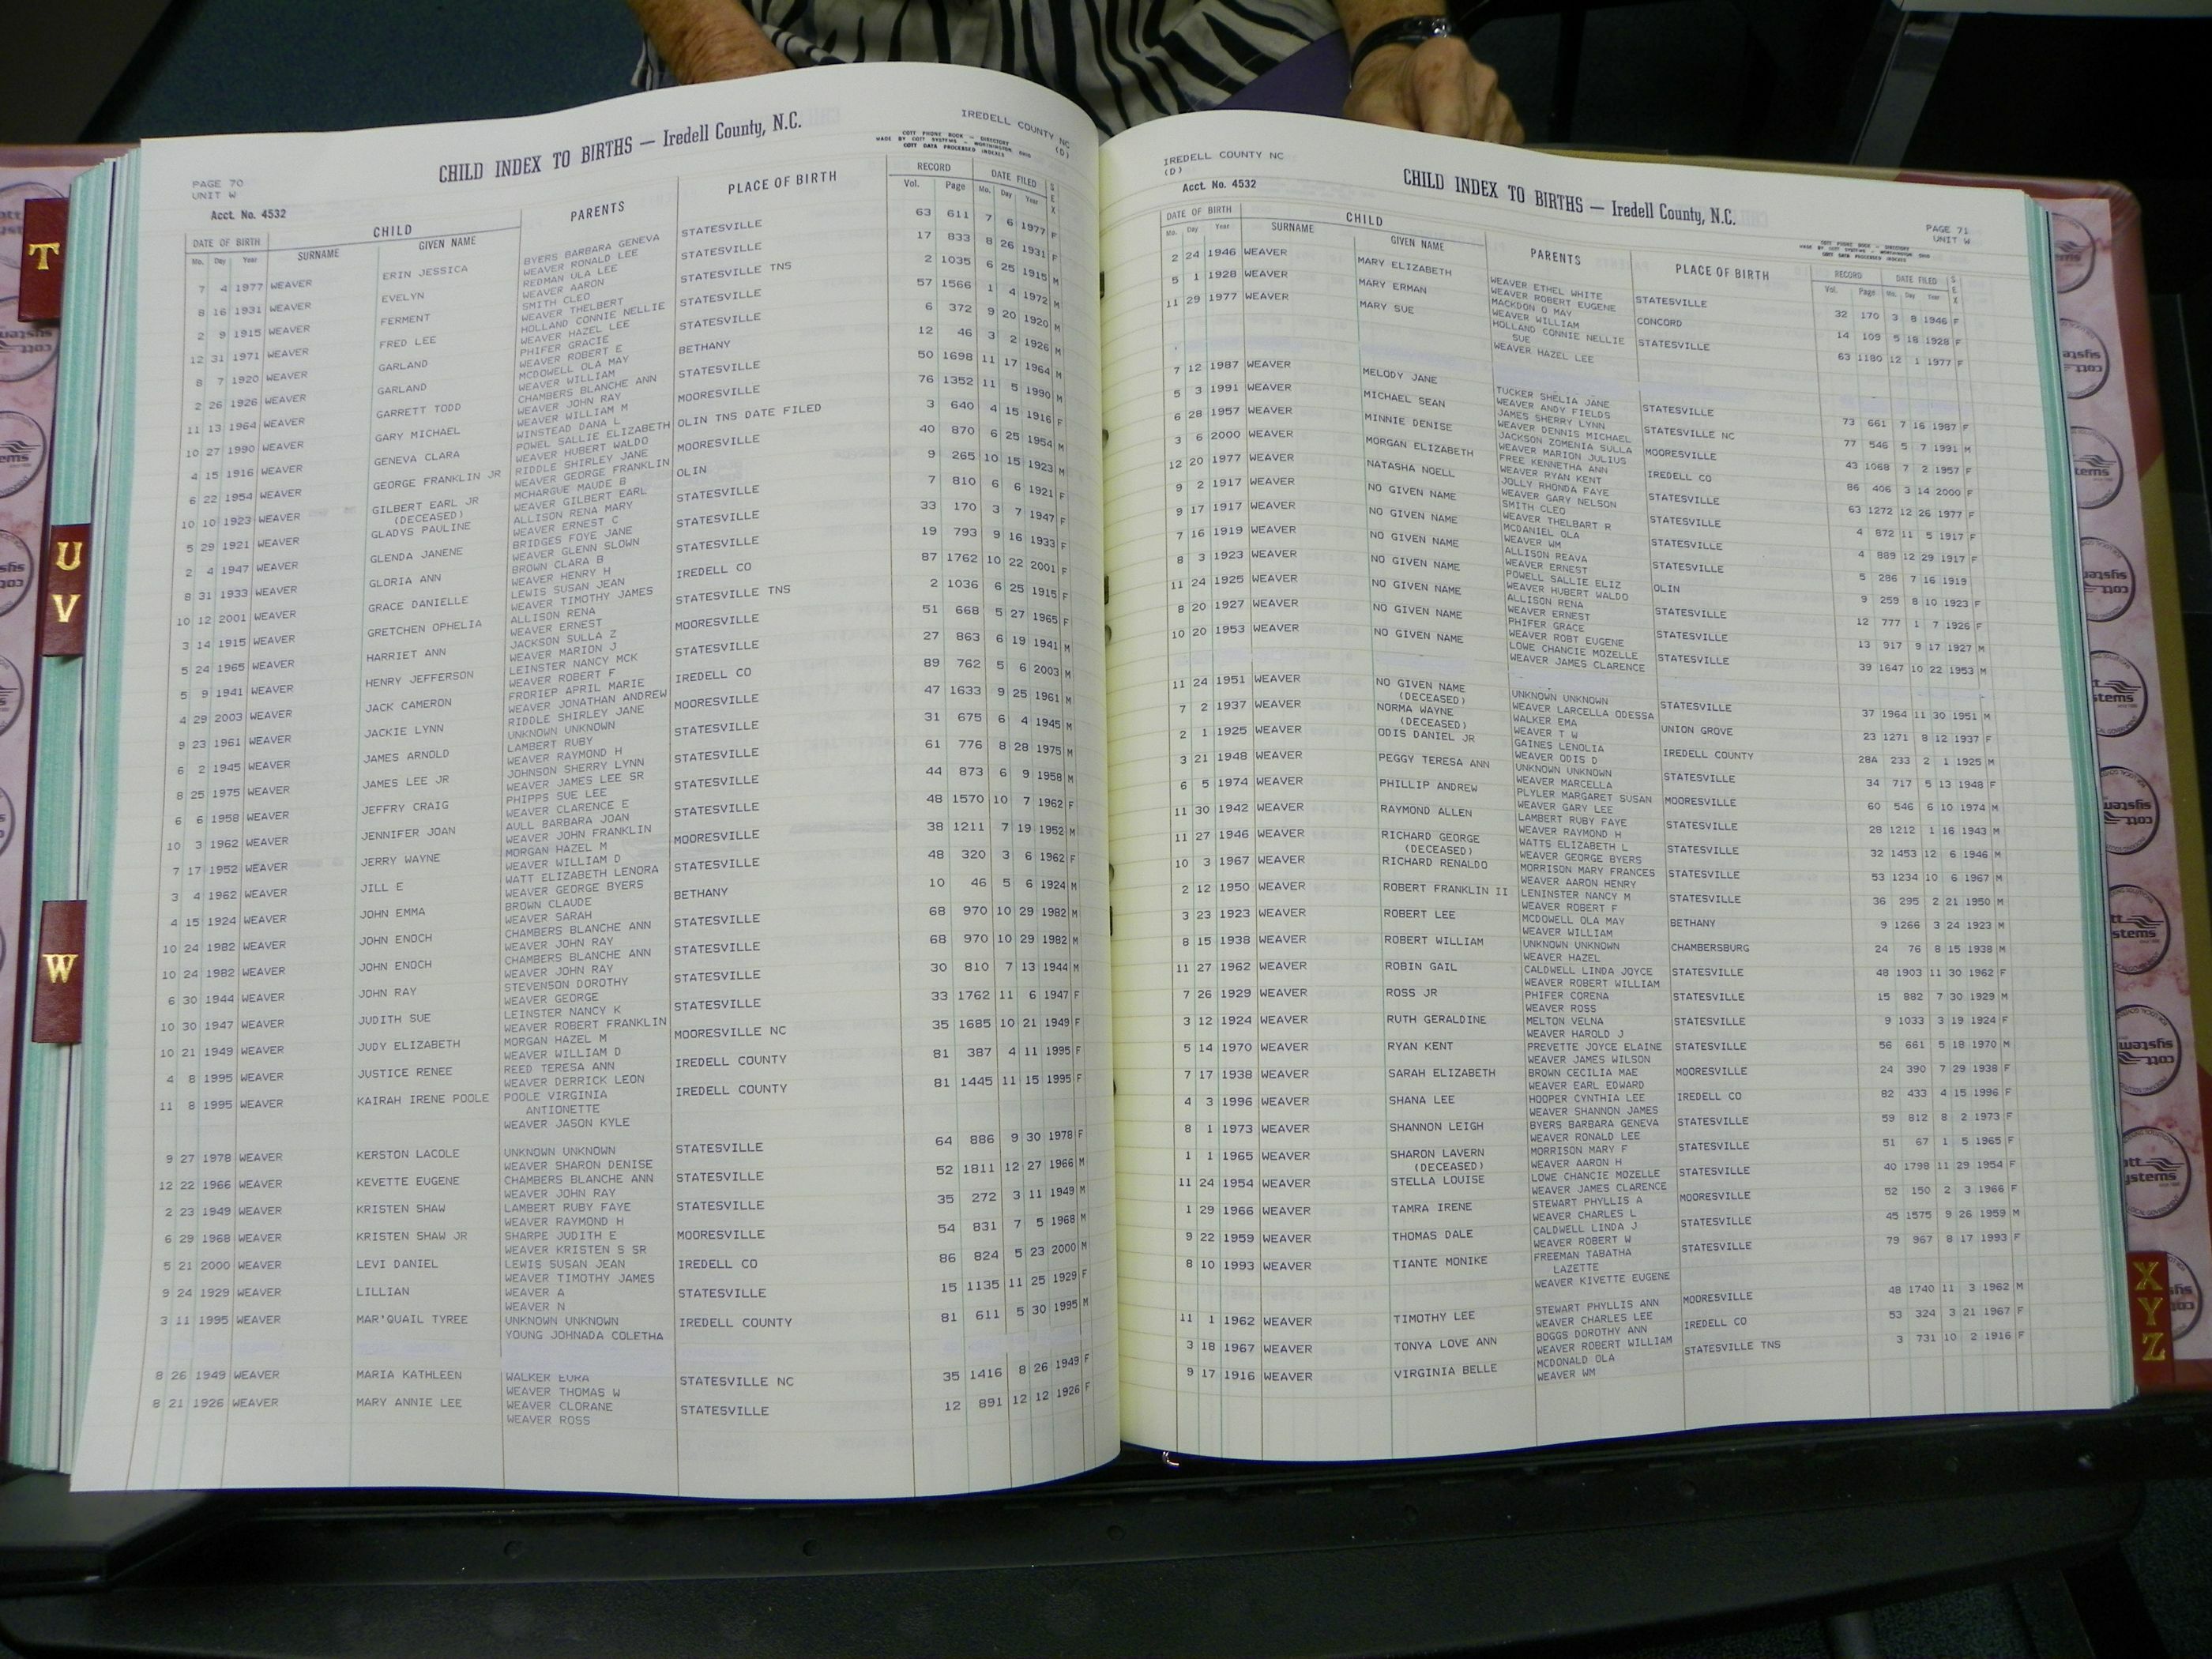 IREDELL COUNTY NC
(D)
CHILD INDEX TO BIRTHS — Iredell County, N.C.
COTT PHONE BOOK - DIRECTORY
MADE BY COTT SYSTEMS - WORTHINGTON, OHIO
COTT DATA PROCESSED INDEXES
PAGE 70
UNIT W
Acct. No. 4532
DATE OF BIRTH CHILD PARENTS PLACE OF BIRTH RECORD DATE FILED SEX
Mo. Day Year SURNAME GIVEN NAME Vol. Page Mo. Day Year
7 4 1977 WEAVER ERIN JESSICA BYERS BARBARA GENEVA STATESVILLE 63 611 7 6 1977 F
WEAVER RONALD LEE
8 16 1931 WEAVER EVELYN REDMAN ULA LEE STATESVILLE 17 833 8 26 1931 F
WEAVER AARON
2 9 1915 WEAVER FERMENT SMITH CLEO STATESVILLE TNS 2 1035 6 25 1915 M
WEAVER THELBERT
12 31 1971 WEAVER FRED LEE HOLLAND CONNIE NELLIE STATESVILLE 57 1566 1 4 1972 M
WEAVER HAZEL LEE
8 7 1920 WEAVER GARLAND PHIFER GRACIE STATESVILLE 6 372 9 20 1920 M
WEAVER ROBERT E
2 26 1926 WEAVER GARLAND MCDOWELL OLA MAY BETHANY 12 46 3 2 1926 M
WEAVER WILLIAM
11 13 1964 WEAVER GARRETT TODD CHAMBERS BLANCHE ANN STATESVILLE 50 1698 11 17 1964 M
WEAVER JOHN RAY
10 27 1990 WEAVER GARY MICHAEL WEAVER WILLIAM M MOORESVILLE 76 1352 11 5 1990 M
WINSTEAD DANA L
4 15 1916 WEAVER GENEVA CLARA POWEL SALLIE ELIZABETH OLIN TNS DATE FILED 3 640 4 15 1916 F
WEAVER HUBERT WALDO
6 22 1954 WEAVER GEORGE FRANKLIN JR RIDDLE SHIRLEY JANE MOORESVILLE 40 870 6 25 1954 M
WEAVER GEORGE FRANKLIN
10 10 1923 WEAVER GILBERT EARL JR MCHARGUE MAUDE B OLIN 9 265 10 15 1923 M
(DECEASED) WEAVER GILBERT EARL
5 29 1921 WEAVER GLADYS PAULINE ALLISON RENA MARY STATESVILLE 7 810 6 6 1921 F
WEAVER ERNEST C
2 4 1947 WEAVER GLENDA JANENE BRIDGES FOYE JANE STATESVILLE 33 170 3 7 1947 F
WEAVER GLENN SLOWN
8 31 1933 WEAVER GLORIA ANN BROWN CLARA B STATESVILLE 19 793 9 16 1933 F
WEAVER HENRY H
10 12 2001 WEAVER GRACE DANIELLE LEWIS SUSAN JEAN IREDELL CO 87 1762 10 22 2001 F
WEAVER TIMOTHY JAMES
3 14 1915 WEAVER GRETCHEN OPHELIA ALLISON RENA STATESVILLE TNS 2 1036 6 25 1915 F
WEAVER ERNEST
5 24 1965 WEAVER HARRIET ANN JACKSON SULLA Z MOORESVILLE 51 668 5 27 1965 F
WEAVER MARION J
5 9 1941 WEAVER HENRY JEFFERSON LEINSTER NANCY MCK STATESVILLE 27 863 6 19 1941 M
WEAVER ROBERT F
4 29 2003 WEAVER JACK CAMERON FRORIEP APRIL MARIE IREDELL CO 89 762 5 6 2003 M
WEAVER JONATHAN ANDREW
9 23 1961 WEAVER JACKIE LYNN RIDDLE SHIRLEY JANE MOORESVILLE 47 1633 9 25 1961 M
UNKNOWN UNKNOWN
6 2 1945 WEAVER JAMES ARNOLD LAMBERT RUBY STATESVILLE 31 675 6 4 1945 M
WEAVER RAYMOND H
8 25 1975 WEAVER JAMES LEE JR JOHNSON SHERRY LYNN STATESVILLE 61 776 8 28 1975 M
WEAVER JAMES LEE SR
6 6 1958 WEAVER JEFFRY CRAIG PHIPPS SUE LEE STATESVILLE 44 873 6 9 1958 M
WEAVER CLARENCE E
10 3 1962 WEAVER JENNIFER JOAN AULL BARBARA JOAN STATESVILLE 48 1570 10 7 1962 F
WEAVER JOHN FRANKLIN
7 17 1952 WEAVER JERRY WAYNE MORGAN HAZEL M MOORESVILLE 38 1211 7 19 1952 M
WEAVER WILLIAM D
3 4 1962 WEAVER JILL E WATT ELIZABETH LENORA STATESVILLE 48 320 3 6 1962 F
WEAVER GEORGE BYERS
4 15 1924 WEAVER JOHN EMMA BROWN CLAUDE BETHANY 10 46 5 6 1924 M
WEAVER SARAH
10 24 1982 WEAVER JOHN ENOCH CHAMBERS BLANCHE ANN STATESVILLE 68 970 10 29 1982 M
WEAVER JOHN RAY
10 24 1982 WEAVER JOHN ENOCH CHAMBERS BLANCHE ANN STATESVILLE 68 970 10 29 1982 M
WEAVER JOHN RAY
6 30 1944 WEAVER JOHN RAY STEVENSON DOROTHY STATESVILLE 30 810 7 13 1944 M
WEAVER GEORGE
10 30 1947 WEAVER JUDITH SUE LEINSTER NANCY K STATESVILLE 33 1762 11 6 1947 F
WEAVER ROBERT FRANKLIN
10 21 1949 WEAVER JUDY ELIZABETH MORGAN HAZEL M MOORESVILLE NC 35 1685 10 21 1949 F
WEAVER WILLIAM D
4 8 1995 WEAVER JUSTICE RENEE REED TERESA ANN IREDELL COUNTY 81 387 4 11 1995 F
WEAVER DERRICK LEON
11 8 1995 WEAVER KAIRAH IRENE POOLE POOLE VIRGINIA IREDELL COUNTY 81 1445 11 15 1995 F
ANTIONETTE
WEAVER JASON KYLE
9 27 1978 WEAVER KERSTON LACOLE UNKNOWN UNKNOWN STATESVILLE 64 886 9 30 1978 F
WEAVER SHARON DENISE
12 22 1966 WEAVER KEVETTE EUGENE CHAMBERS BLANCHE ANN STATESVILLE 52 1811 12 27 1966 M
WEAVER JOHN RAY
2 23 1949 WEAVER KRISTEN SHAW LAMBERT RUBY FAYE STATESVILLE 35 272 3 11 1949 M
WEAVER RAYMOND H
6 29 1968 WEAVER KRISTEN SHAW JR SHARPE JUDITH E MOORESVILLE 54 831 7 5 1968 M
WEAVER KRISTEN S SR
5 21 2000 WEAVER LEVI DANIEL LEWIS SUSAN JEAN IREDELL CO 86 824 5 23 2000 M
WEAVER TIMOTHY JAMES
9 24 1929 WEAVER LILLIAN WEAVER A STATESVILLE 15 1135 11 25 1929 F
WEAVER N
3 11 1995 WEAVER MAR'QUAIL TYREE UNKNOWN UNKNOWN IREDELL COUNTY 81 611 5 30 1995 M
YOUNG JOHNADA COLETHA
8 26 1949 WEAVER MARIA KATHLEEN WALKER EURA STATESVILLE NC 35 1416 8 26 1949 F
WEAVER THOMAS W
8 21 1926 WEAVER MARY ANNIE LEE WEAVER CLORANE STATESVILLE 12 891 12 12 1926 F
WEAVER ROSS
IREDELL COUNTY NC
(D)
Acct. No. 4532
CHILD INDEX TO BIRTHS — Iredell County, N.C.
PAGE 71
UNIT W
DATE OF BIRTH CHILD PARENTS PLACE OF BIRTH RECORD DATE FILED SEX
Mo. Day Year SURNAME GIVEN NAME Vol. Page Mo. Day Year
2 24 1946 WEAVER MARY ELIZABETH WEAVER ETHEL WHITE STATESVILLE 32 170 3 8 1946 F
WEAVER ROBERT EUGENE
5 1 1928 WEAVER MARY ERMAN MACKDON O MAY CONCORD 14 109 5 18 1928 F
WEAVER WILLIAM
11 29 1977 WEAVER MARY SUE HOLLAND CONNIE NELLIE STATESVILLE 63 1180 12 1 1977 F
SUE
WEAVER HAZEL LEE
7 12 1987 WEAVER MELODY JANE TUCKER SHELIA JANE STATESVILLE 73 661 7 16 1987 F
WEAVER ANDY FIELDS
5 3 1991 WEAVER MICHAEL SEAN JAMES SHERRY LYNN STATESVILLE NC 77 546 5 7 1991 M
WEAVER DENNIS MICHAEL
6 28 1957 WEAVER MINNIE DENISE JACKSON ZOMENIA SULLA MOORESVILLE 43 1068 7 2 1957 F
WEAVER MARION JULIUS
3 6 2000 WEAVER MORGAN ELIZABETH FREE KENNETHA ANN IREDELL CO 86 406 3 14 2000 F
WEAVER RYAN KENT
12 20 1977 WEAVER NATASHA NOELL JOLLY RHONDA FAYE STATESVILLE 63 1272 12 26 1977 F
WEAVER GARY NELSON
9 2 1917 WEAVER NO GIVEN NAME SMITH CLEO STATESVILLE 4 872 11 5 1917 F
WEAVER THELBART R
9 17 1917 WEAVER NO GIVEN NAME MCDANIEL OLA STATESVILLE 4 889 12 29 1917 F
WEAVER WM
7 16 1919 WEAVER NO GIVEN NAME ALLISON REAVA STATESVILLE 5 286 7 16 1919
WEAVER ERNEST
8 3 1923 WEAVER NO GIVEN NAME POWELL SALLIE ELIZ OLIN 9 259 8 10 1923 F
WEAVER HUBERT WALDO
11 24 1925 WEAVER NO GIVEN NAME ALLISON RENA STATESVILLE 12 777 1 7 1926 F
WEAVER ERNEST
8 20 1927 WEAVER NO GIVEN NAME PHIFER GRACE STATESVILLE 13 917 9 17 1927 M
WEAVER ROBT EUGENE
10 20 1953 WEAVER NO GIVEN NAME LOWE CHANCIE MOZELLE STATESVILLE 39 1647 10 22 1953 M
WEAVER JAMES CLARENCE
11 24 1951 WEAVER NO GIVEN NAME UNKNOWN UNKNOWN STATESVILLE 37 1964 11 30 1951 M
(DECEASED) WEAVER LARCELLA ODESSA
7 2 1937 WEAVER NORMA WAYNE WALKER EMA UNION GROVE 23 1271 8 12 1937 F
(DECEASED) WEAVER T W
2 1 1925 WEAVER ODIS DANIEL JR GAINES LENOLIA IREDELL COUNTY 28A 233 2 1 1925 M
WEAVER ODIS D
3 21 1948 WEAVER PEGGY TERESA ANN UNKNOWN UNKNOWN STATESVILLE 34 717 5 13 1948 F
WEAVER MARCELLA
6 5 1974 WEAVER PHILLIP ANDREW PLYLER MARGARET SUSAN MOORESVILLE 60 546 6 10 1974 M
WEAVER GARY LEE
11 30 1942 WEAVER RAYMOND ALLEN LAMBERT RUBY FAYE STATESVILLE 28 1212 1 16 1943 M
WEAVER RAYMOND H
11 27 1946 WEAVER RICHARD GEORGE WATTS ELIZABETH L STATESVILLE 32 1453 12 6 1946 M
(DECEASED) WEAVER GEORGE BYERS
10 3 1967 WEAVER RICHARD RENALDO MORRISON MARY FRANCES STATESVILLE 53 1234 10 6 1967 M
WEAVER AARON HENRY
2 12 1950 WEAVER ROBERT FRANKLIN II LENINSTER NANCY M STATESVILLE 36 295 2 21 1950 M
WEAVER ROBERT F
3 23 1923 WEAVER ROBERT LEE MCDOWELL OLA MAY BETHANY 9 1266 3 24 1923 M
WEAVER WILLIAM
8 15 1938 WEAVER ROBERT WILLIAM UNKNOWN UNKNOWN CHAMBERSBURG 24 76 8 15 1938 M
WEAVER HAZEL
11 27 1962 WEAVER ROBIN GAIL CALDWELL LINDA JOYCE STATESVILLE 48 1903 11 30 1962 F
WEAVER ROBERT WILLIAM
7 26 1929 WEAVER ROSS JR PHIFER CORENA STATESVILLE 15 882 7 30 1929 M
WEAVER ROSS
3 12 1924 WEAVER RUTH GERALDINE MELTON VELNA STATESVILLE 9 1033 3 19 1924 F
WEAVER HAROLD J
5 14 1970 WEAVER RYAN KENT PREVETTE JOYCE ELAINE STATESVILLE 56 661 5 18 1970 M
WEAVER JAMES WILSON
7 17 1938 WEAVER SARAH ELIZABETH BROWN CECILIA MAE MOORESVILLE 24 390 7 29 1938 F
WEAVER EARL EDWARD
4 3 1996 WEAVER SHANA LEE HOOPER CYNTHIA LEE IREDELL CO 82 433 4 15 1996 F
WEAVER SHANNON JAMES
8 1 1973 WEAVER SHANNON LEIGH BYERS BARBARA GENEVA STATESVILLE 59 812 8 2 1973 F
WEAVER RONALD LEE
1 1 1965 WEAVER SHARON LAVERN MORRISON MARY F STATESVILLE 51 67 1 5 1965 F
(DECEASED) WEAVER AARON H
11 24 1954 WEAVER STELLA LOUISE LOWE CHANCIE MOZELLE STATESVILLE 40 1798 11 29 1954 F
WEAVER JAMES CLARENCE
1 29 1966 WEAVER TAMRA IRENE STEWART PHYLLIS A MOORESVILLE 52 150 2 3 1966 F
WEAVER CHARLES L
9 22 1959 WEAVER THOMAS DALE CALDWELL LINDA J STATESVILLE 45 1575 9 26 1959 M
WEAVER ROBERT W
8 10 1993 WEAVER TIANTE MONIKE FREEMAN TABATHA STATESVILLE 79 967 8 17 1993 F
LAZETTE
WEAVER KIVETTE EUGENE
11 1 1962 WEAVER TIMOTHY LEE STEWART PHYLLIS ANN MOORESVILLE 48 1740 11 3 1962 M
WEAVER CHARLES LEE
3 18 1967 WEAVER TONYA LOVE ANN BOGGS DOROTHY ANN IREDELL CO 53 324 3 21 1967 F
WEAVER ROBERT WILLIAM
9 17 1916 WEAVER VIRGINIA BELLE MCDONALD OLA STATESVILLE TNS 3 731 10 2 1916 F
WEAVER WM
T
U
V
W
X
Y
Z